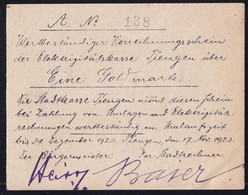 A. No 138
Wertbeständiger Verrechnungsschein
der Elektrizitätskasse Tiengen über
Eine Goldmark.
Die Stadtkasse Tiengen nimmt diesen Schein
bei Zahlung von Umlagen und Elektrizitäts-
rechnungen wertbeständig an. Umlaufszeit
bis 31. Dezember 1923. Tiengen, den 17. Nov. 1923.
Der Bürgermeister: Der Stadtrechner